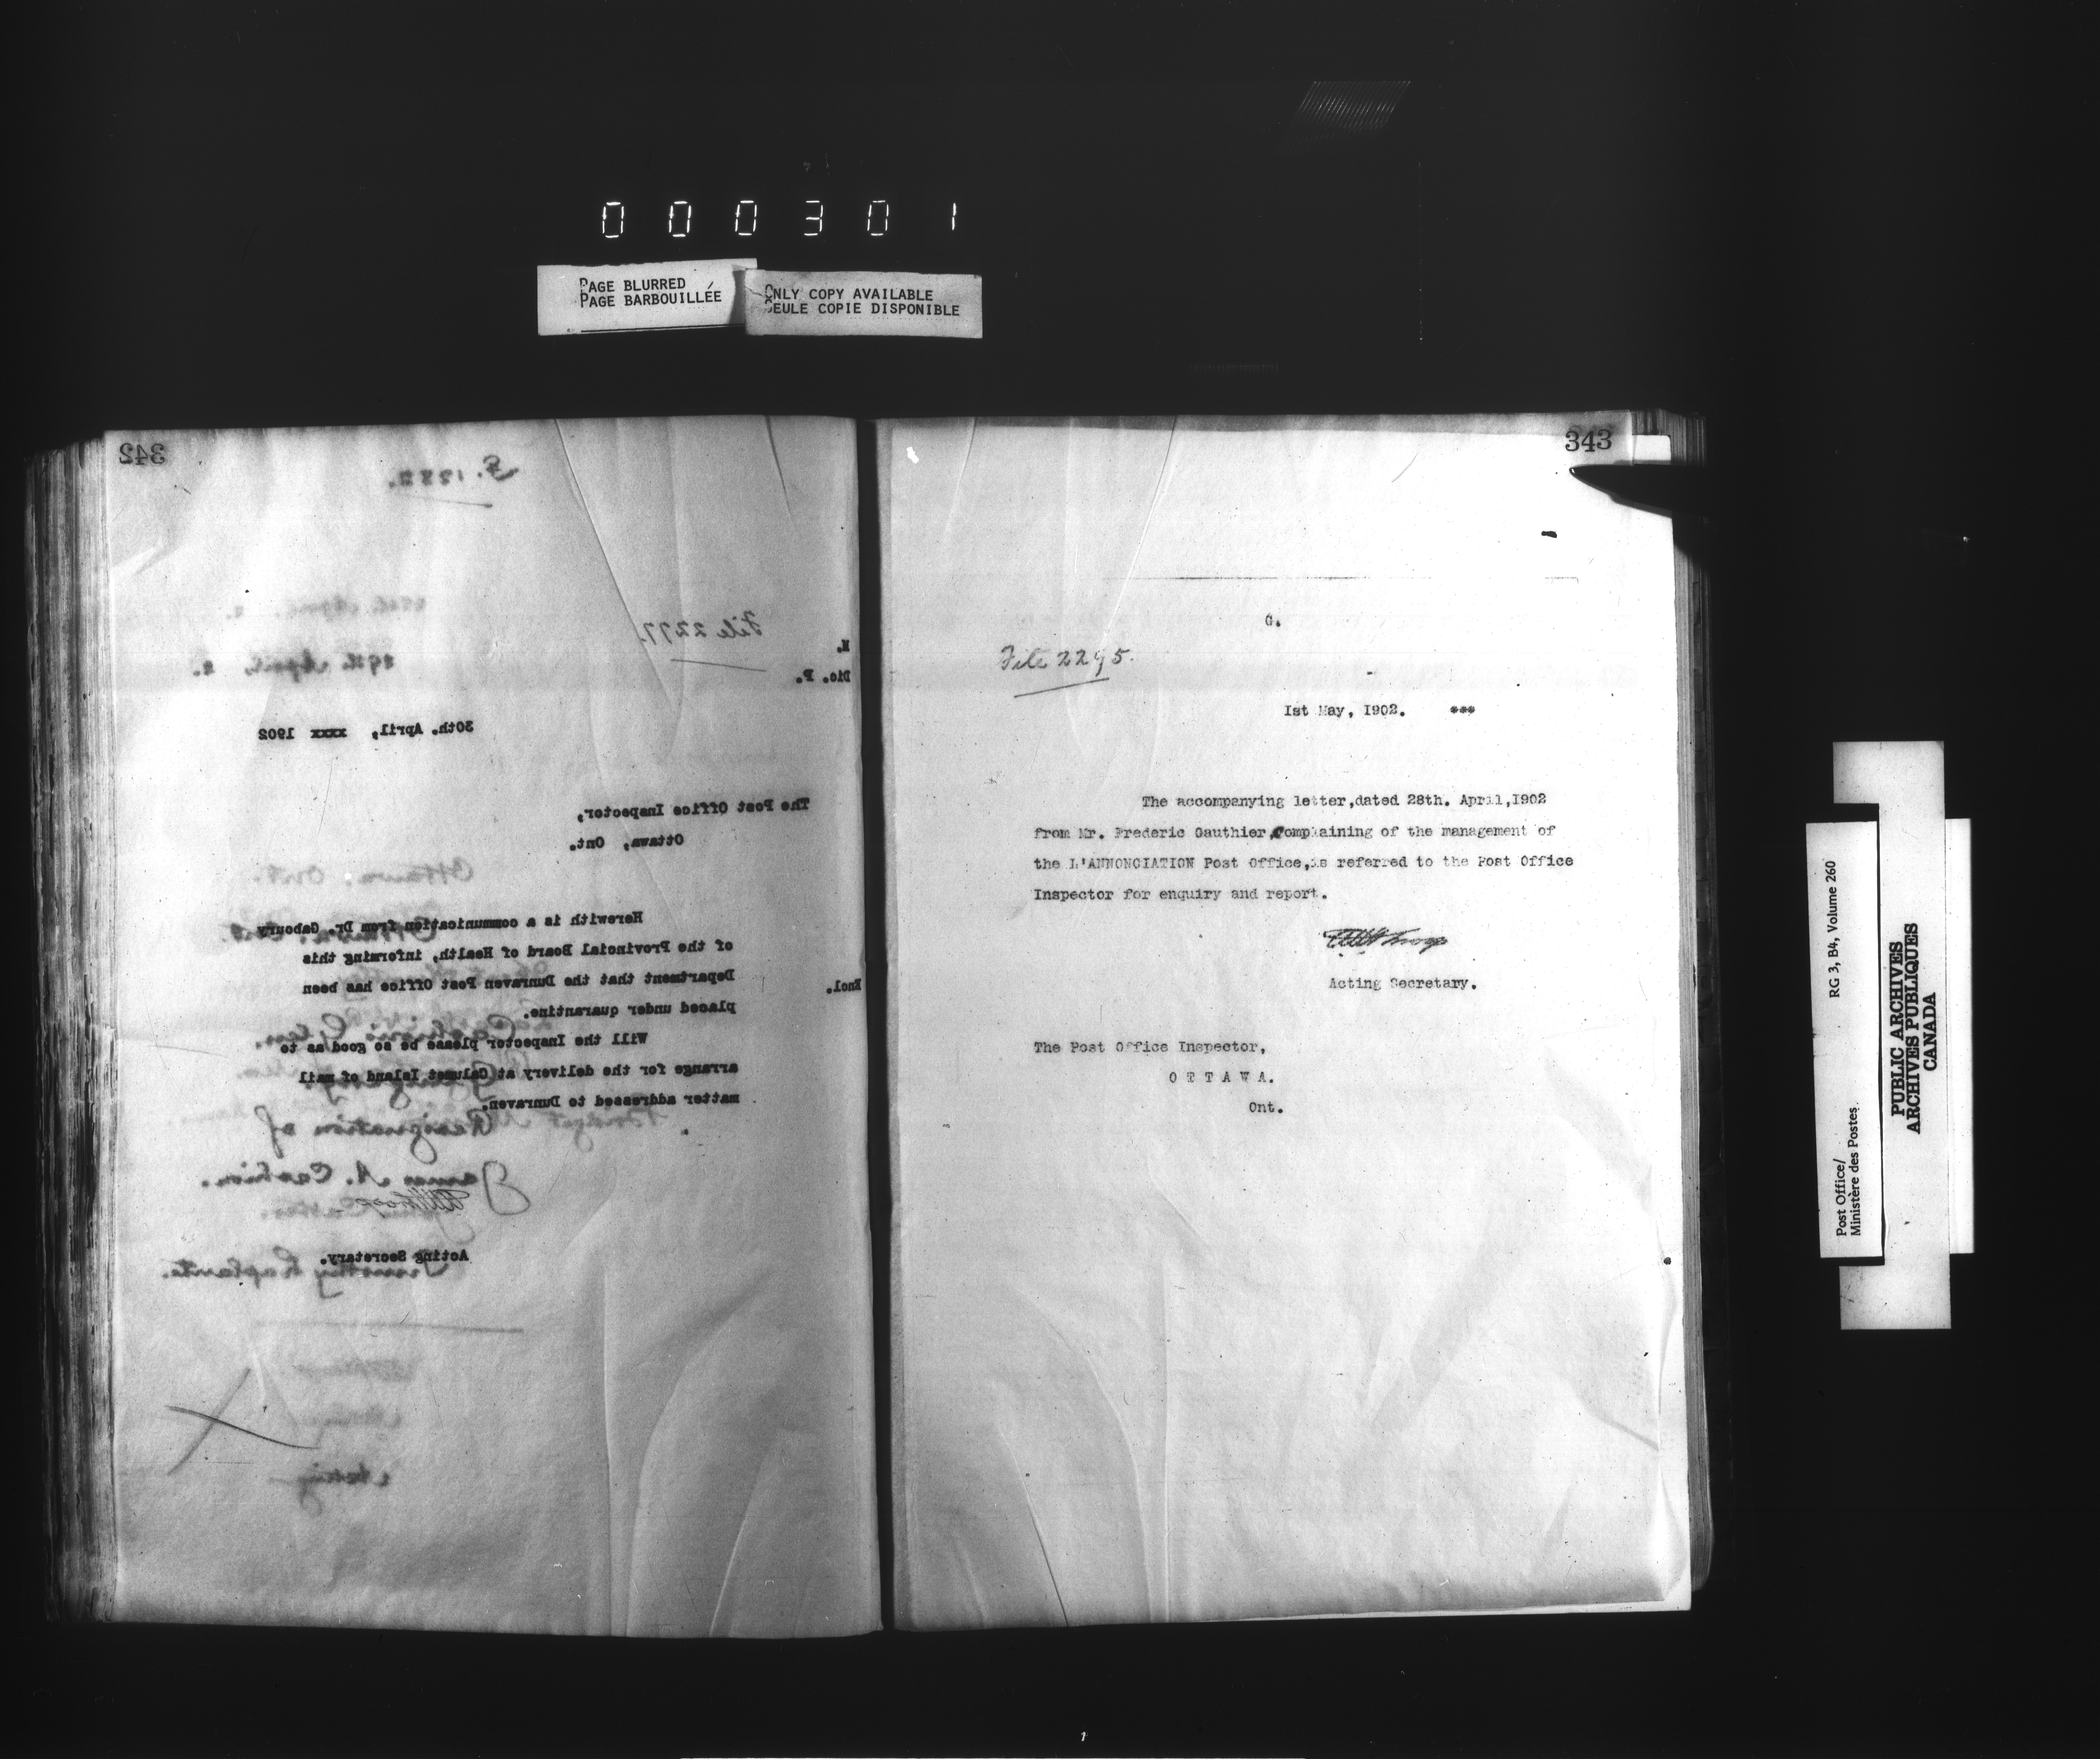 000301
PAGE BLURRED
PAGE BARBOUILLÉE
ONLY COPY AVAILABLE
SEULE COPIE DISPONIBLE
342
File 2277.
M.
Dic. P.
29th April, 2.
30th. April, xxxx 1902
The Post Office Inspector,
Ottawa, Ont.
Ottawa, Ont.
Herewith is a communication from Dr. Gaboury
of the Provincial Board of Health, informing this
Department that the Dunraven Post Office has been
Encl.
placed under quarantine.
Will the Inspector please be so good as to
arrange for the delivery at Calumet Island of mail
matter addressed to Dunraven.
Resignation of
James A. Cashion.
Acting Secretary.
Timothy Laplante.
343
G.
File 2295.
1st May, 1902. ***
The accompanying letter,dated 28th. April,1902
from Mr. Frederic Gauthier,Complaining of the management of
the L'ANNONCIATION Post Office,is referred to the Post Office
Inspector for enquiry and report.
Acting Secretary.
The Post Office Inspector,
O T T A W A.
Ont.
Post Office/
Ministère des Postes
RG 3, B4, Volume 260
PUBLIC ARCHIVES
ARCHIVES PUBLIQUES
CANADA